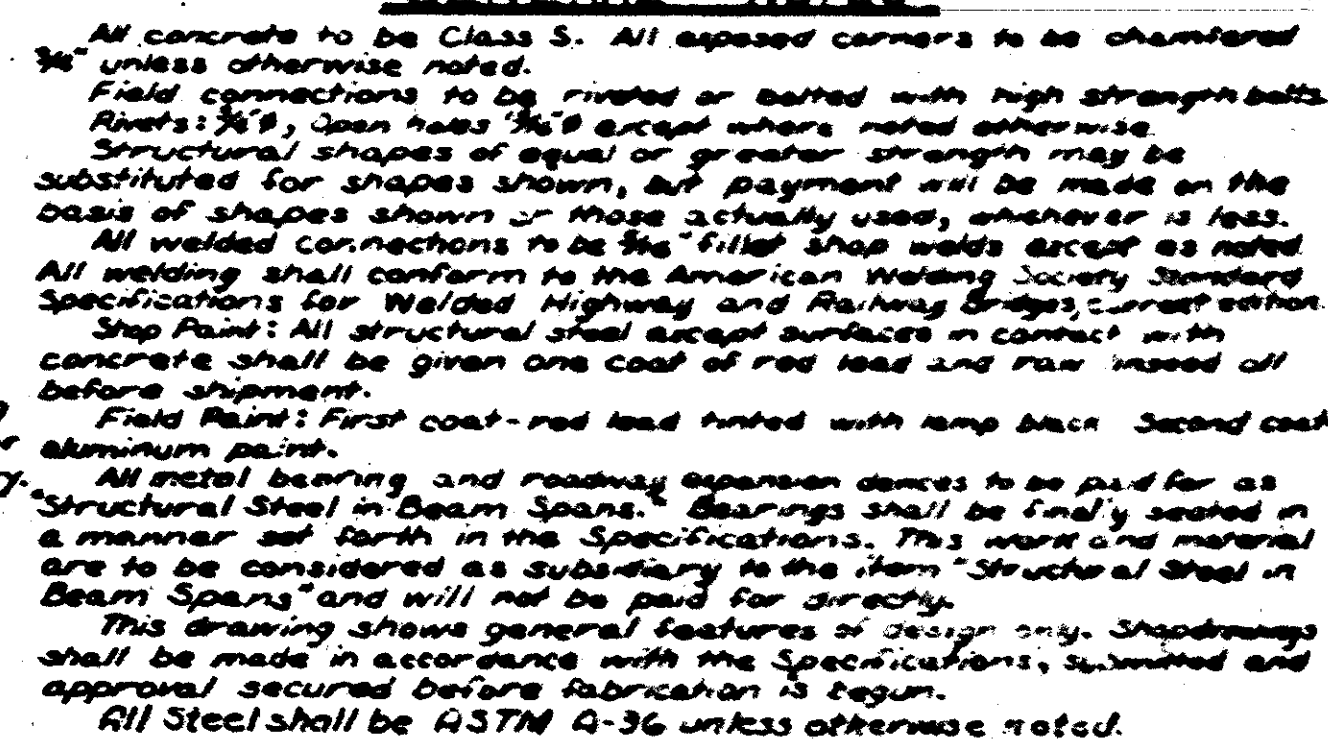 All concrete to be Class S. All exposed corners to be chamfered
3/4" unless otherwise noted.
Field connections to be riveted or bolted with high strength bolts
Rivets: 3/4"ø, Open holes 13/16"ø except where noted otherwise
Structural shapes of equal or greater strength may be
substituted for shapes shown, but payment will be made on the
basis of shapes shown or those actually used, whichever is less.
All welded connections to be 5/16" fillet shop welds except as noted
All welding shall conform to the American Welding Society Standard
Specifications for Welded Highway and Railway Bridges, current edition.
Shop Paint: All structural steel except surfaces in contact with
concrete shall be given one coat of red lead and raw linseed oil
before shipment.
Field Paint: First coat-red lead tinted with lamp black Second coat
aluminum paint.
All metal bearing and roadway expansion devices to be paid for as
"Structural Steel in Beam Spans." Bearings shall be finally seated in
a manner set forth in the Specifications. This work and material
are to be considered as subsidiary to the item "Structural Steel in
Beam Spans" and will not be paid for directly.
This drawing shows general features of design only. Shop drawings
shall be made in accordance with the Specifications, submitted and
approval secured before fabrication is begun.
All Steel shall be ASTM A-36 unless otherwise noted.